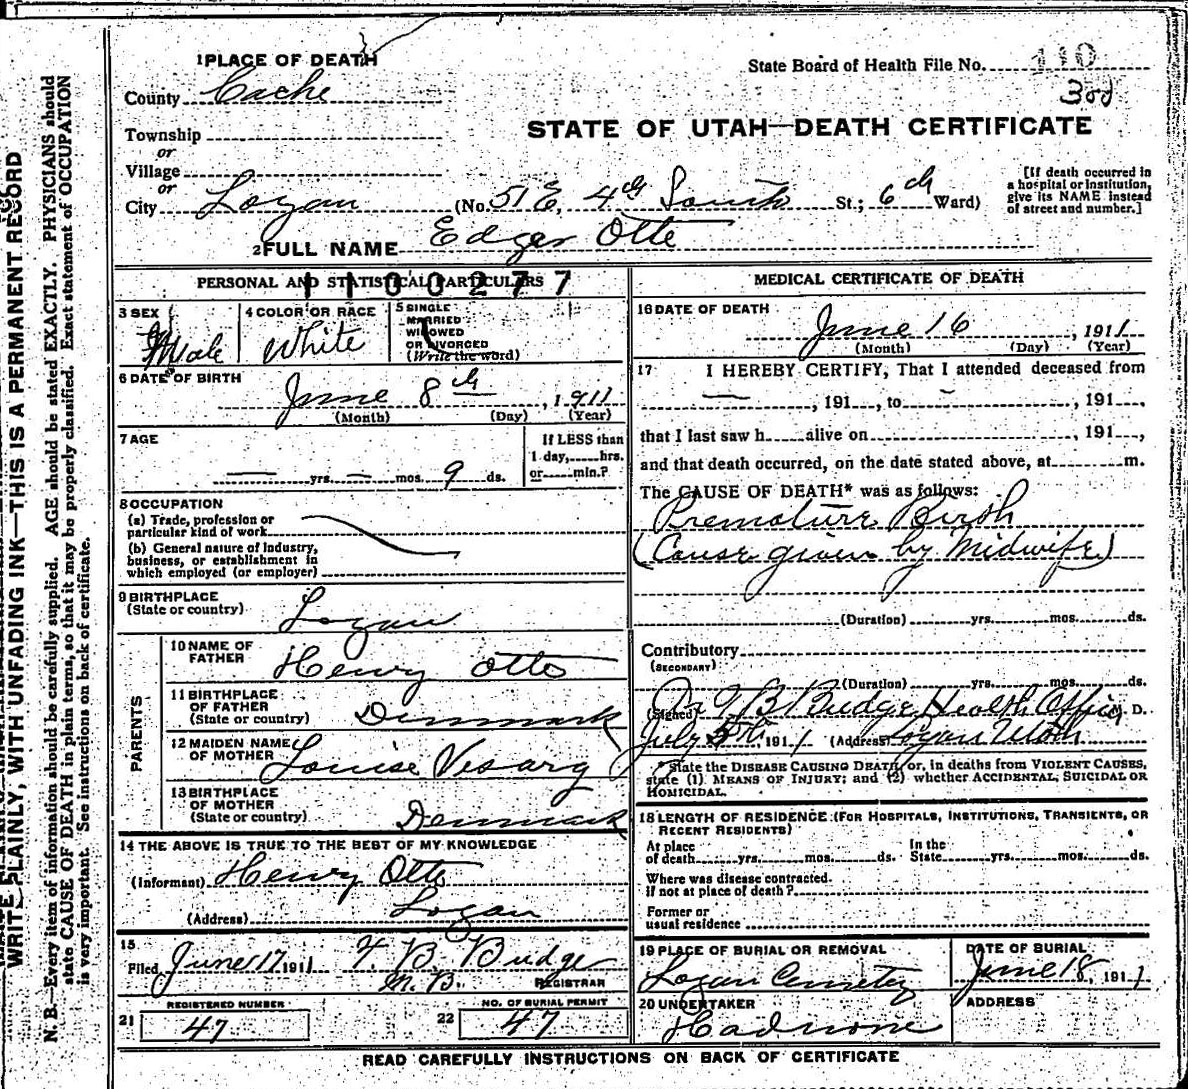 WRITE PLAINLY, WITH UNFADING INK—THIS IS A PERMANENT RECORD
N. B.—Every item of information should be carefully supplied. AGE should be stated EXACTLY. PHYSICIANS should
state CAUSE OF DEATH in plain terms, so that it may be properly classified. Exact statement of OCCUPATION
is very important. See instructions on back of certificate.
1 PLACE OF DEATH
State Board of Health File No. 110
County Cache
Township
or
Village
or
City Logan (No. 51 E. 4th South St.; 6th Ward)
STATE OF UTAH—DEATH CERTIFICATE
[If death occurred in
a hospital or institution,
give its NAME instead
of street and number.]
2 FULL NAME Edgar Otte
PERSONAL AND STATISTICAL PARTICULARS
1100277
3 SEX Male
4 COLOR OR RACE White
5 SINGLE
MARRIED
WIDOWED
OR DIVORCED
(Write the word)
6 DATE OF BIRTH
June 8th, 1911
(Month) (Day) (Year)
7 AGE
— yrs. — mos. 9 ds.
If LESS than
1 day, hrs.
or min.?
8 OCCUPATION
(a) Trade, profession or
particular kind of work
(b) General nature of industry,
business, or establishment in
which employed (or employer)
9 BIRTHPLACE
(State or country) Logan
PARENTS
10 NAME OF
FATHER Henry Otte
11 BIRTHPLACE
OF FATHER
(State or country) Denmark
12 MAIDEN NAME
OF MOTHER Louise
13 BIRTHPLACE
OF MOTHER
(State or country) Denmark
14 THE ABOVE IS TRUE TO THE BEST OF MY KNOWLEDGE
(Informant) Henry Otte
(Address) Logan
15
Filed June 17 1911 F. B. Budge
M. D. REGISTRAR
REGISTERED NUMBER
21 47
NO. OF BURIAL PERMIT
22 47
MEDICAL CERTIFICATE OF DEATH
16 DATE OF DEATH
June 16, 1911
(Month) (Day) (Year)
17 I HEREBY CERTIFY, That I attended deceased from
—, 191, to —, 191,
that I last saw h alive on, 191,
and that death occurred, on the date stated above, at m.
The CAUSE OF DEATH* was as follows:
Premature Birth
(Cause given by Midwife)
(Duration) yrs. mos. ds.
Contributory
(SECONDARY)
(Duration) yrs. mos. ds.
(Signed) Budge Health Officer M. D.
July 5th, 1911 (Address) Logan Utah
* State the DISEASE CAUSING DEATH, or, in deaths from VIOLENT CAUSES,
state (1) MEANS OF INJURY; and (2) whether ACCIDENTAL, SUICIDAL OR
HOMICIDAL.
18 LENGTH OF RESIDENCE (FOR HOSPITALS, INSTITUTIONS, TRANSIENTS, OR
RECENT RESIDENTS)
At place
of death yrs. mos. ds.
In the
State yrs. mos. ds.
Where was disease contracted.
If not at place of death?
Former or
usual residence
19 PLACE OF BURIAL OR REMOVAL
Logan Cemetery
DATE OF BURIAL
June 18, 1911
20 UNDERTAKER
Had none
ADDRESS
READ CAREFULLY INSTRUCTIONS ON BACK OF CERTIFICATE